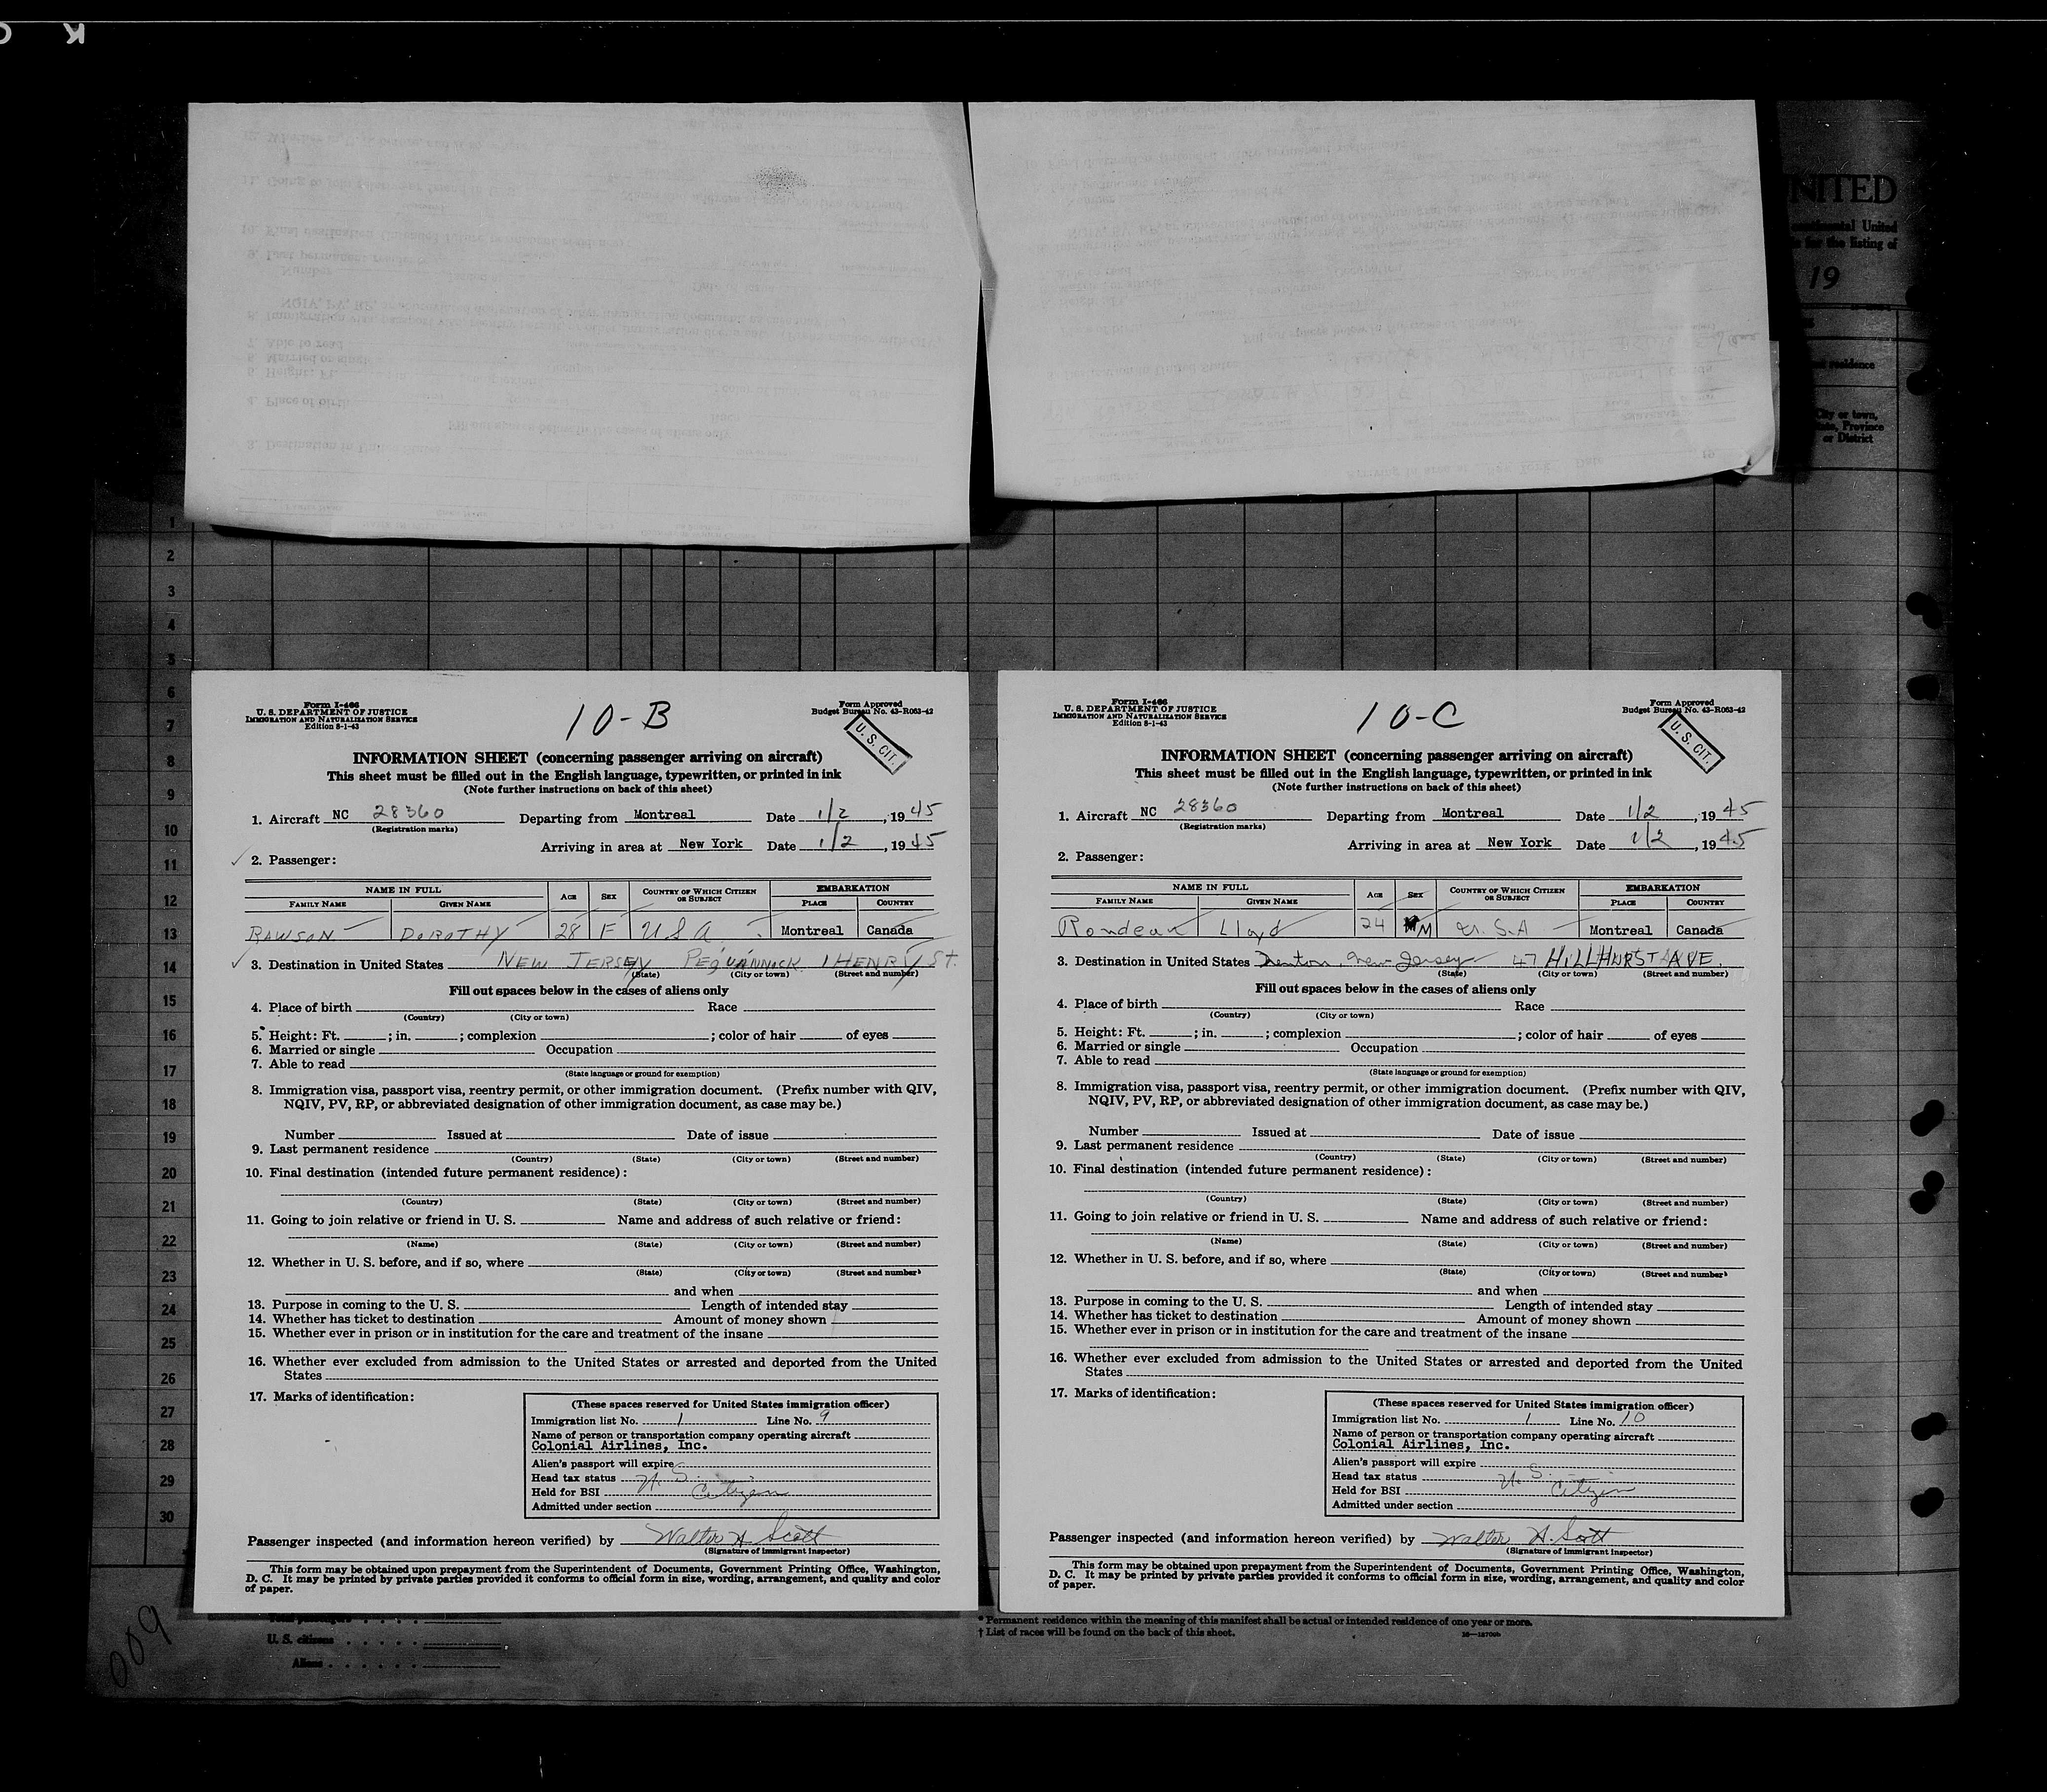 NITED
continental United
for the listing of
19
residence
City or town,
State, Province
or District
1
2
3
4
5
6
7
8
9
10
11
12
13
14
15
16
17
18
19
20
21
22
23
24
25
26
27
28
29
30
Form I-466
U. S. DEPARTMENT OF JUSTICE
IMMIGRATION AND NATURALIZATION SERVICE
Edition 8-1-43
10-B
Form Approved
Budget Bureau No. 43-R063-42
U. S. CIT.
INFORMATION SHEET (concerning passenger arriving on aircraft)
This sheet must be filled out in the English language, typewritten, or printed in ink
(Note further instructions on back of this sheet)
1. Aircraft NC 28360 Departing from Montreal Date 1/2, 1945
(Registration marks)
Arriving in area at New York Date 1/2, 1945
2. Passenger:
NAME IN FULL AGE SEX COUNTRY OF WHICH CITIZEN OR SUBJECT EMBARKATION
FAMILY NAME GIVEN NAME PLACE COUNTRY
RAWSON DOROTHY 28 F U S A Montreal Canada
3. Destination in United States NEW JERSEY PEQUANNOCK 1 HENRY ST.
(State) (City or town) (Street and number)
Fill out spaces below in the cases of aliens only
4. Place of birth Race
(Country) (City or town)
5. Height: Ft. ; in. ; complexion ; color of hair of eyes
6. Married or single Occupation
7. Able to read
(State language or ground for exemption)
8. Immigration visa, passport visa, reentry permit, or other immigration document. (Prefix number with QIV,
NQIV, PV, RP, or abbreviated designation of other immigration document, as case may be.)
Number Issued at Date of issue
9. Last permanent residence
(Country) (State) (City or town) (Street and number)
10. Final destination (intended future permanent residence):
(Country) (State) (City or town) (Street and number)
11. Going to join relative or friend in U. S. Name and address of such relative or friend:
(Name) (State) (City or town) (Street and number)
12. Whether in U. S. before, and if so, where
(State) (City or town) (Street and number)
and when
13. Purpose in coming to the U. S. Length of intended stay
14. Whether has ticket to destination Amount of money shown
15. Whether ever in prison or in institution for the care and treatment of the insane
16. Whether ever excluded from admission to the United States or arrested and deported from the United
States
17. Marks of identification:
(These spaces reserved for United States immigration officer)
Immigration list No. 1 Line No. 9
Name of person or transportation company operating aircraft
Colonial Airlines, Inc.
Alien's passport will expire
Head tax status U. S.
Held for BSI Citizen
Admitted under section
Passenger inspected (and information hereon verified) by Walter H. Scott
(Signature of immigrant inspector)
This form may be obtained upon prepayment from the Superintendent of Documents, Government Printing Office, Washington,
D. C. It may be printed by private parties provided it conforms to official form in size, wording, arrangement, and quality and color
of paper.
Form I-466
U. S. DEPARTMENT OF JUSTICE
IMMIGRATION AND NATURALIZATION SERVICE
Edition 8-1-43
10-C
Form Approved
Budget Bureau No. 43-R063-42
U. S. CIT.
INFORMATION SHEET (concerning passenger arriving on aircraft)
This sheet must be filled out in the English language, typewritten, or printed in ink
(Note further instructions on back of this sheet)
1. Aircraft NC 28360 Departing from Montreal Date 1/2, 1945
(Registration marks)
Arriving in area at New York Date 1/2, 1945
2. Passenger:
NAME IN FULL AGE SEX COUNTRY OF WHICH CITIZEN OR SUBJECT EMBARKATION
FAMILY NAME GIVEN NAME PLACE COUNTRY
Rondeau Lloyd 24 M U.S.A Montreal Canada
3. Destination in United States Trenton, New Jersey 47 HILLHURST AVE.
(State) (City or town) (Street and number)
Fill out spaces below in the cases of aliens only
4. Place of birth Race
(Country) (City or town)
5. Height: Ft. ; in. ; complexion ; color of hair of eyes
6. Married or single Occupation
7. Able to read
(State language or ground for exemption)
8. Immigration visa, passport visa, reentry permit, or other immigration document. (Prefix number with QIV,
NQIV, PV, RP, or abbreviated designation of other immigration document, as case may be.)
Number Issued at Date of issue
9. Last permanent residence
(Country) (State) (City or town) (Street and number)
10. Final destination (intended future permanent residence):
(Country) (State) (City or town) (Street and number)
11. Going to join relative or friend in U. S. Name and address of such relative or friend:
(Name) (State) (City or town) (Street and number)
12. Whether in U. S. before, and if so, where
(State) (City or town) (Street and number)
and when
13. Purpose in coming to the U. S. Length of intended stay
14. Whether has ticket to destination Amount of money shown
15. Whether ever in prison or in institution for the care and treatment of the insane
16. Whether ever excluded from admission to the United States or arrested and deported from the United
States
17. Marks of identification:
(These spaces reserved for United States immigration officer)
Immigration list No. 1 Line No. 10
Name of person or transportation company operating aircraft
Colonial Airlines, Inc.
Alien's passport will expire
Head tax status U. S.
Held for BSI Citizen
Admitted under section
Passenger inspected (and information hereon verified) by Walter H. Scott
(Signature of immigrant inspector)
This form may be obtained upon prepayment from the Superintendent of Documents, Government Printing Office, Washington,
D. C. It may be printed by private parties provided it conforms to official form in size, wording, arrangement, and quality and color
of paper.
Total passengers
U. S. citizens
Aliens
* Permanent residence within the meaning of this manifest shall be actual or intended residence of one year or more.
† List of races will be found on the back of this sheet.
009